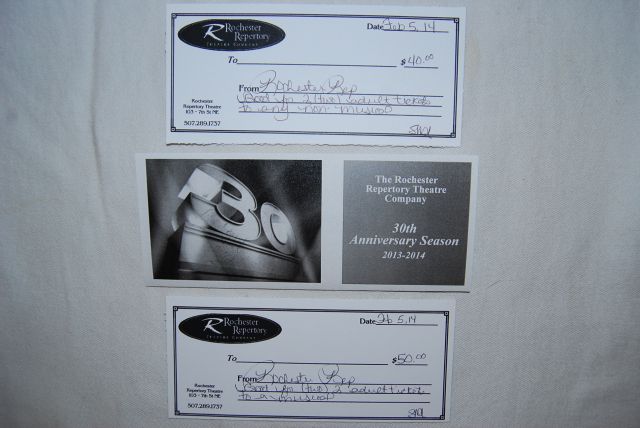 Rochester
Repertory
Theatre Company
Date Feb 5, 14
To
$ 40.00
From Rochester Rep
Good for 2 (two) adult tickets
to any non-musical
Rochester
Repertory Theatre
103 - 7th St NE
507.289.1737
30
The Rochester
Repertory Theatre
Company
30th
Anniversary Season
2013-2014
Rochester
Repertory
Theatre Company
Date Feb 5, 14
To
$ 50.00
From Rochester Rep
Good for (two) 2 adult tickets
to a musical
Rochester
Repertory Theatre
103 - 7th St NE
507.289.1737